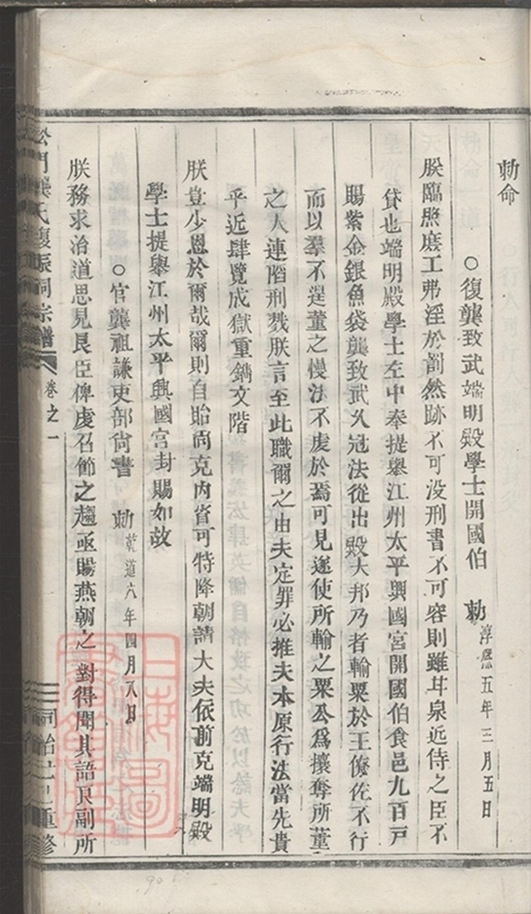 勅命
○復龔致武端明殿學士開國伯 勅 淳熈五年三月五日
朕臨照庶工弗淫於罰然跡不可没刑書不可容則雖甘泉近侍之臣不
貸也端明殿學士至中奉提舉江州太平興國宮開國伯食邑九百戸
賜紫金銀魚袋龔致武久冠法從出殿大邦乃者輸粟於王僚佐不行
而以羣不逞董之慢法不虔於焉可見遂使所輸之粟公爲攘奪所董
之人連陷刑戮朕言至此職爾之由夫定罪必推夫本原行法當先貴
乎近肆覽成獄重鐫文階
朕豈少恩於爾哉爾則自貽尚克内省可特降朝請大夫依前克端明殿
學士提舉江州太平興國宮封賜如故
○官龔祖謙吏部尙書 勅 乾道六年四月八日
朕務求治道思見良臣俾虔召節之趨亟賜燕朝之對得聞其語良副所
松門龔氏復振祠宗譜 卷之一 同治 重修